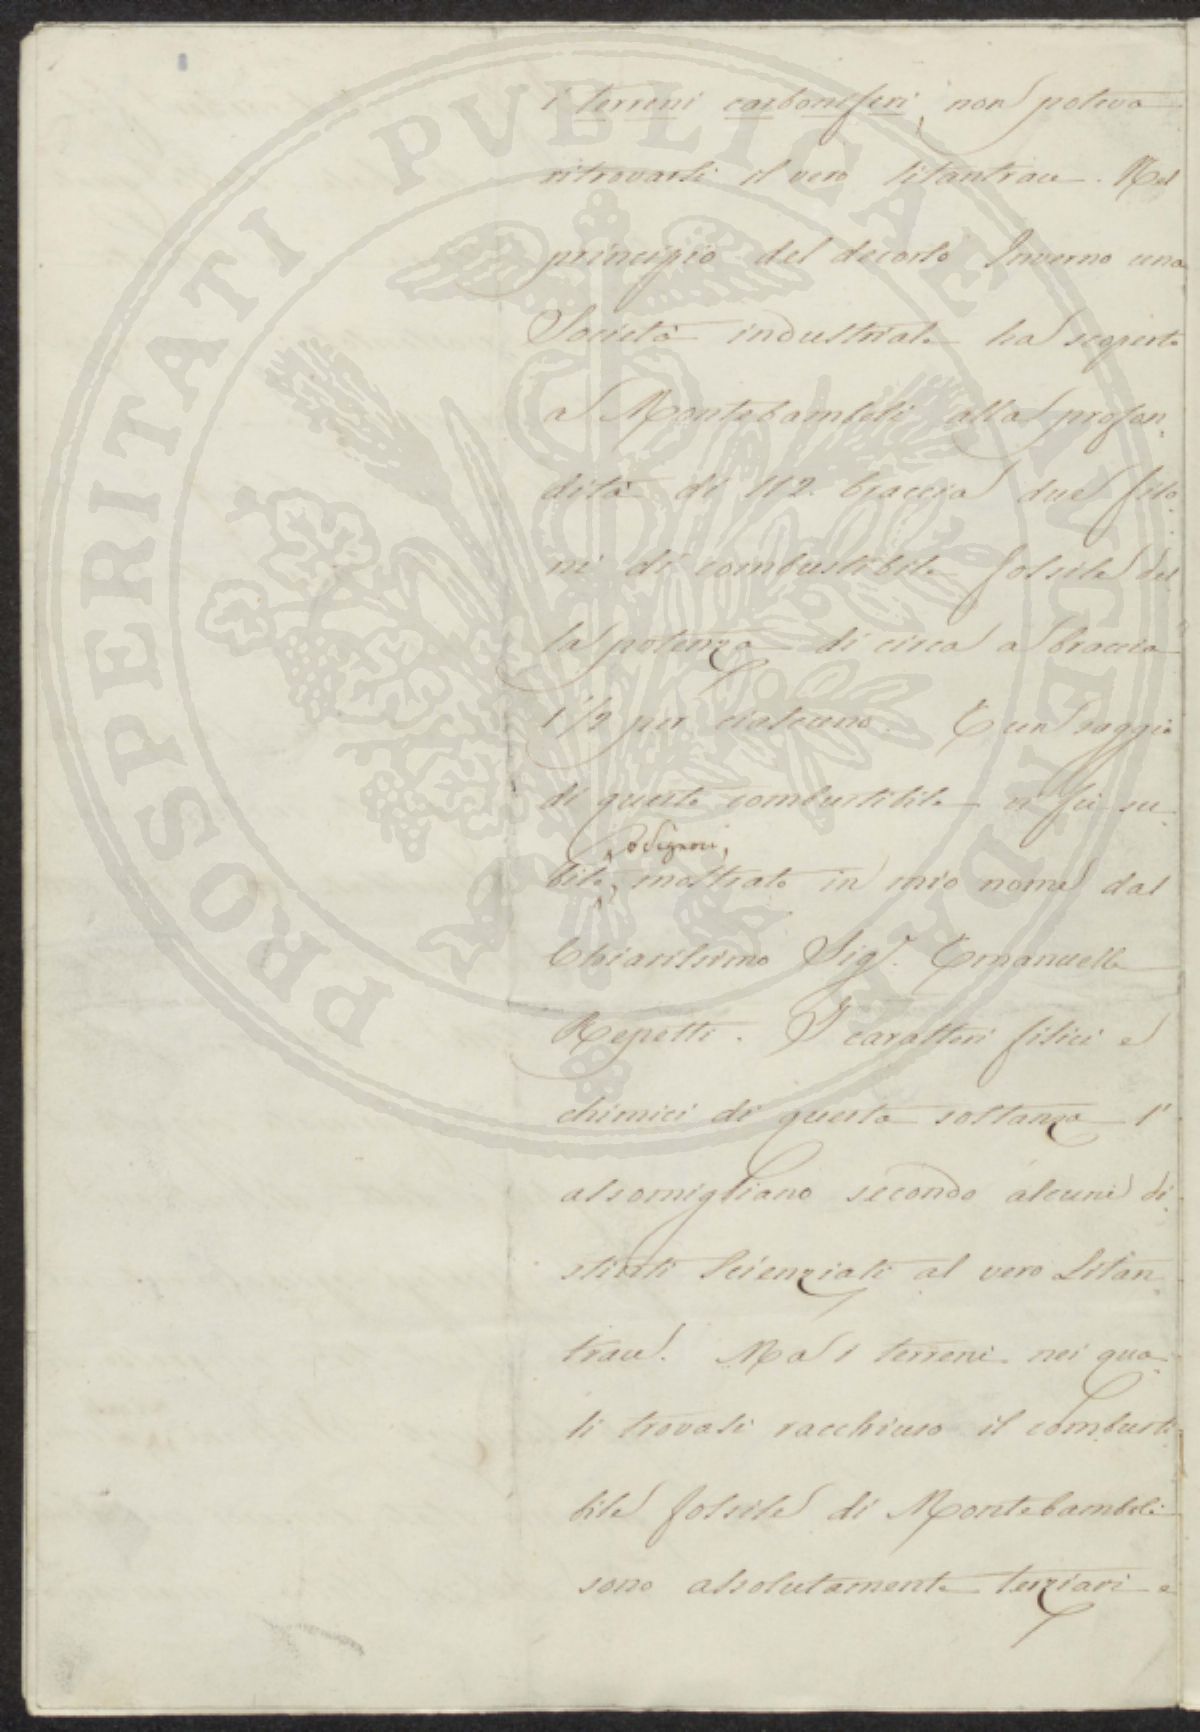 PROSPERITATI PVBLICAE AVGENDAE
i terreni carboniferi, non poteva
ritrovarsi il vero litantrace. Nel
principio del decorso Inverno una
Società industriale ha scoperto
a Montebamboli alla profon,
dità di 112. braccia due filo,
ni di combustibile fossile del
la potenza di circa a braccia
1 1/2 per ciascuno. E un saggio
di questo combustibile vi fù su,
o Signori,
bito, mostrato in mio nome dal
Chiarissimo Sigr. Emanuelle
Repetti. I caratteri fisici e
chimici di questa sostanza l'
assomigliano secondo alcuni di,
stinti Scienziati al vero Litan,
trace. Ma i terreni nei qua,
li trovasi racchiuso il combusti
bile fossile di Montebamboli
sono assolutamente terziari e